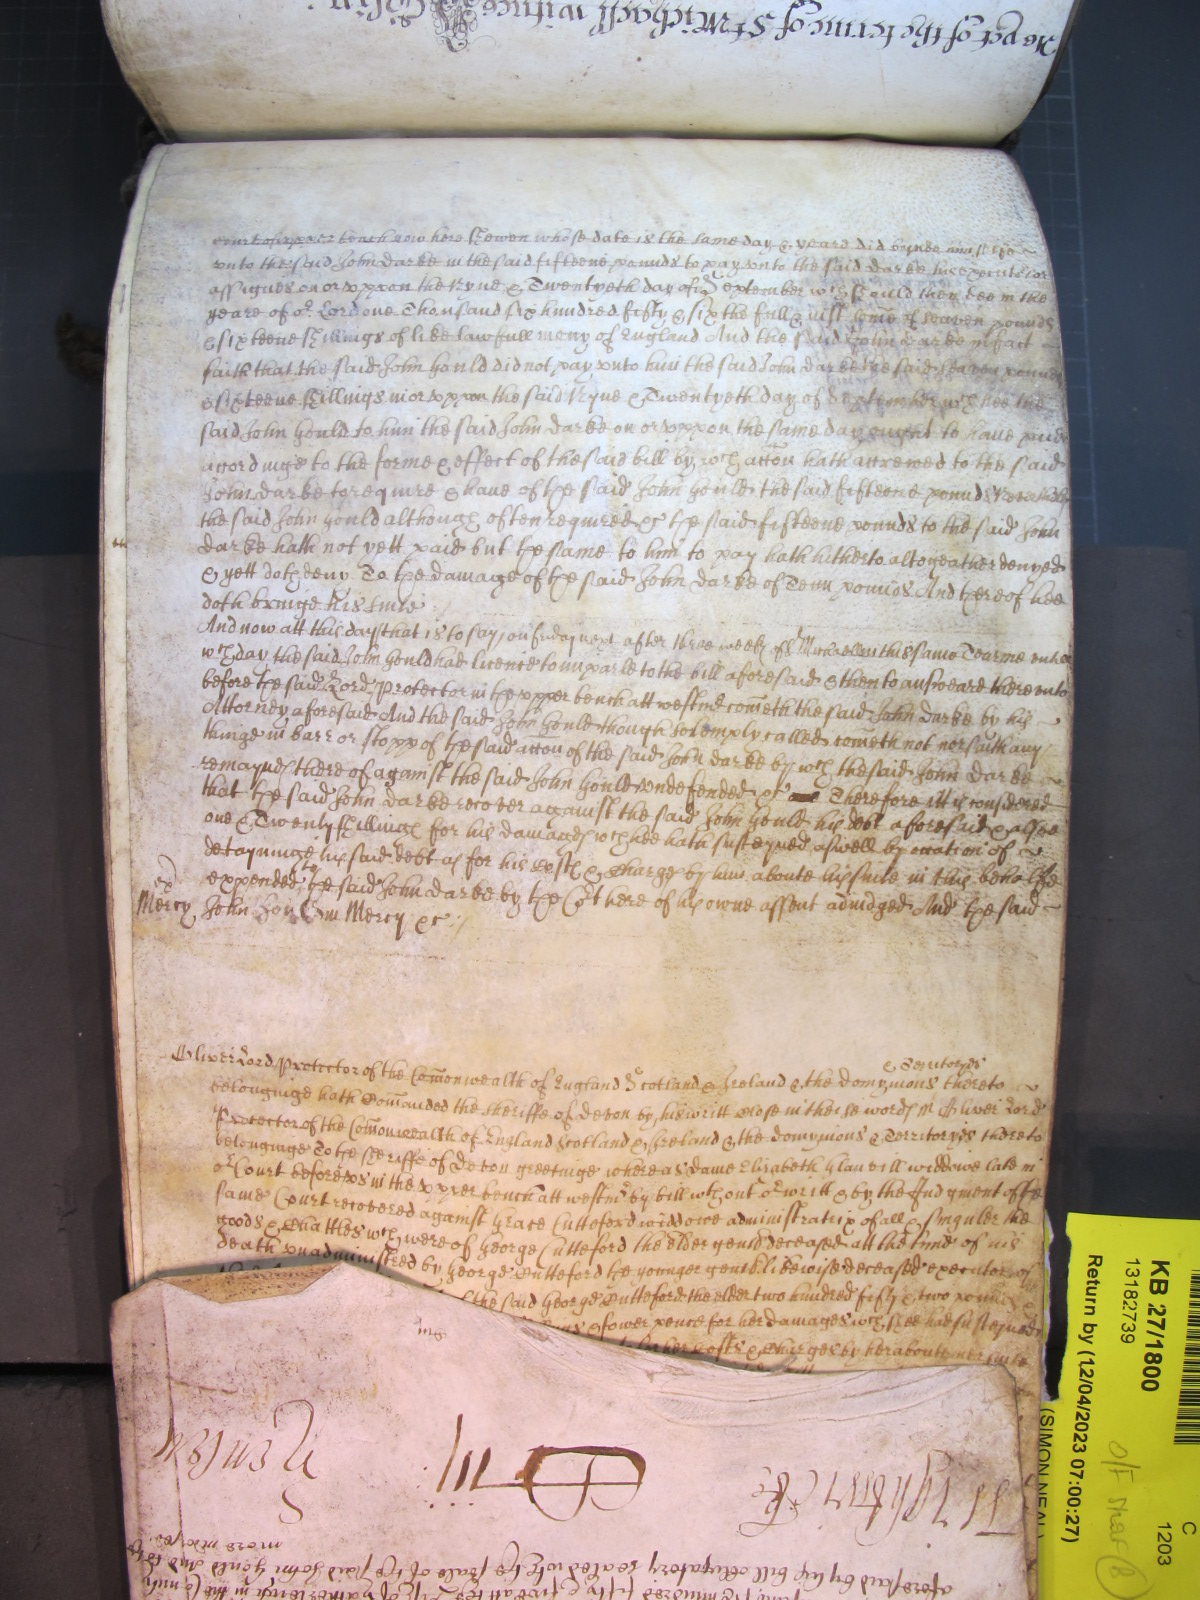 As yet of the terme of St Michaell witnes
court of upper bench now here shewen whose date is the same day & yeare did bynde
unto the said John Darke in the said fifteene pounds to pay unto the said Darke his executors
assignes on or uppon the Nyne & Twentyeth day of September wch should then bee in the
yeare of or Lord one Thousand six hundred fifty & six the full & iust some of seaven pounds
& sixteene shillings of like lawfull mony of England And the said John Darke in fact
saith that the said John Gould did not pay unto him the said John Darke the said seaven pounds
& sixteene shillings in or uppon the said Nyne & Twentyeth day of September wch hee the
said John Gould to him the said John Darke on or uppon the same day ought to have paid
accordinge to the forme & effect of the said bill by wch accon hath accrewed to the said
John Darke to require & have of the said John Gould the said fifteene pounds Neverthelesse
the said John Gould although often required &c the said fifteene pounds to the said John
Darke hath not yett paid but the same to him to pay hath hitherto altogeather denyed
& yett doth deny To the damage of the said John Darke of Tenn pounds And thereof hee
doth bringe his suite
And now att this day that is to say on fryday next after three weekes of St Michaell in this same Tearme untill
wch day the said John Gould had licence to imparle to the bill aforesaid & then to answeare thereunto
before the said Lord Protector in the upper bench att westmr cometh the said John Darke by his
Attorney aforesaid And the said John Gould though solemply called cometh not nor saith any
thinge in barr or stopp of the said accon of the said John Darke by wch the said John Darke
remayneth thereof against the said John Gould undefended &c Therefore itt is considered
that the said John Darke recover against the said John Gould his debt aforesaid & alsoe
one & Twenty shillings for his damages wch hee hath susteyned aswell by occation of
detayninge his said debt as for his costs & charges by him aboute his suite in this behalfe
expended to the said John Darke by the Cort here of his owne assent adiudged And the said
Mercy John Gould in Mercy &c
Oliver Lord Protector of the Comonwealth of England Scotland & Ireland & the domynions & Territoryes thereto
belonginge hath Comanded the Sheriffe of Devon by his writt close in these words Oliver Lord
Protector of the Comonwealth of England Scotland & Ireland & the domynions & Territoryes thereto
belonginge To the Sheriffe of Devon greetinge whereas dame Elizabeth Glanvill widdowe late in
or Court before us in the upper bench att westmr by bill wthout or writt & by the Judgment of the
same Court recovered against Grace Cutteford widdowe administratrix of all & singuler the
goods & Chattles wch were of George Cutteford the elder gent deceased att the tyme of his
death unadministred by George Cutteford the younger gent likewise deceased executor of
the said George Cutteford the elder two hundred fifty & two pounds
& fower pence for her damages wch shee had susteyned
her costs & Charges by her aboute her suite
aforesaid by his bill obligatory sealed wth the seale of the said John Gould And to the
more
KB 27/1800
13182739
Return by (12/04/2023 07:00:27)
(SIMON NEAL)
C
1203